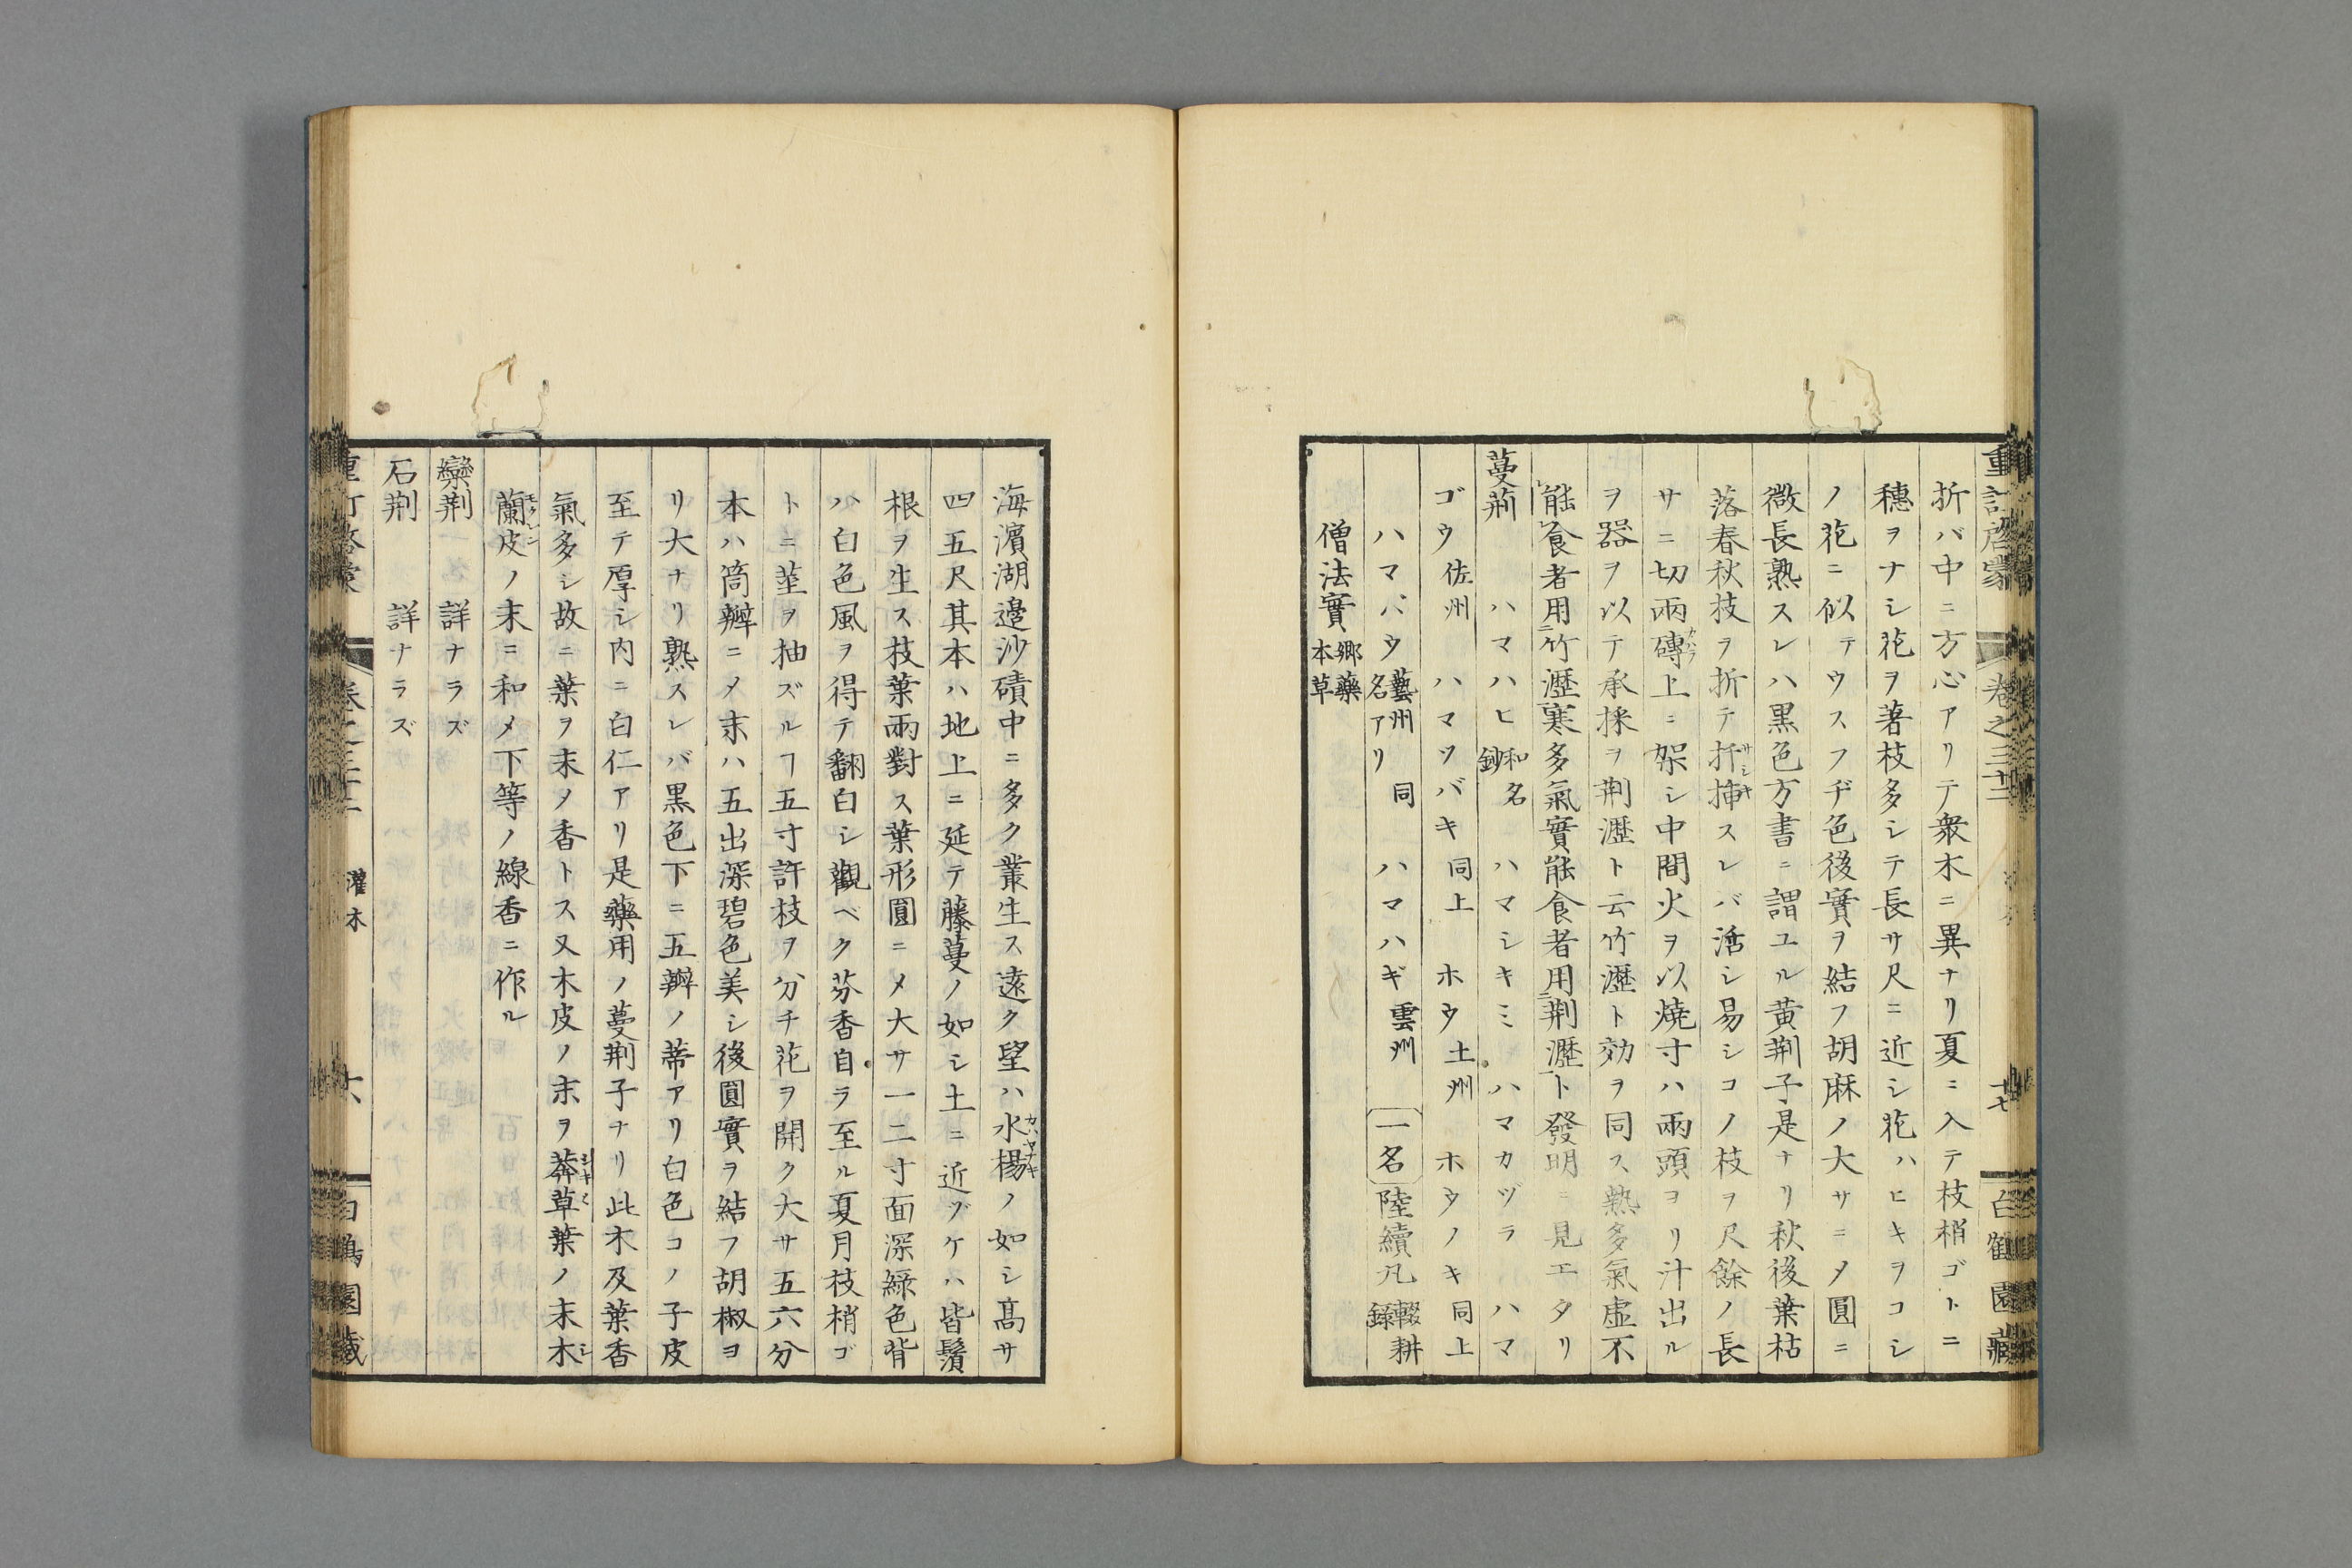 折バ中ニ方心アリテ衆木ニ異ナリ夏ニ入テ枝梢ゴトニ
穗ヲナシ花ヲ著枝多シテ長サ尺ニ近シ花ハヒキヲコシ
ノ花ニ似テウスフヂ色後實ヲ結フ胡麻ノ大サニメ圓ニ
微長熟スレハ黒色方書ニ謂ユル黄荆子是ナリ秋後葉枯
落春秋枝ヲ折テ扦挿スレバ活シ易シコノ枝ヲ尺餘ノ長
サニ切兩磚上ニ架シ中間火ヲ以燒寸ハ兩頭ヨリ汁出ル
ヲ器ヲ以テ承採ヲ荆瀝ト云竹瀝ト効ヲ同ス熱多氣虚不
能食者用竹瀝寒多氣實能食者用荆瀝ト發明ニ見エタリ
蔓荊 ハマハヒ 和名鈔 ハマシキミ ハマカヅラ ハマ
ゴウ 佐州 ハマツバキ 同上 ホウ 土州 ホウノキ 同上
ハマバウ 藝州 同名アリ ハマハギ 雲州 一名 陸續凡 輟耕錄
僧法實 郷藥本草
海濱湖邉沙磧中ニ多ク叢生ス遠ク望ハ水楊ノ如シ高サ
四五尺其本ハ地上ニ延テ藤蔓ノ如シ土ニ近ヅケハ皆鬚
根ヲ生ス枝葉兩對ス葉形圓ニメ大サ一二寸面深綠色背
ハ白色風ヲ得テ翻白シ觀ベク芬香自ラ至ル夏月枝梢ゴ
トニ莖ヲ抽ズルヿ五寸許枝ヲ分チ花ヲ開ク大サ五六分
本ハ筒瓣ニメ末ハ五出深碧色美シ後圓實ヲ結フ胡椒ヨ
リ大ナリ熟スレバ黒色下ニ五瓣ノ蒂アリ白色コノ子皮
至テ厚シ内ニ白仁アリ是藥用ノ蔓荆子ナリ此木及葉香
氣多シ故ニ葉ヲ末ノ香トス又木皮ノ末ヲ莽草葉ノ末木
蘭皮ノ末ニ和メ下等ノ線香ニ作ル
欒荆 詳ナラズ
石荆 詳ナラズ